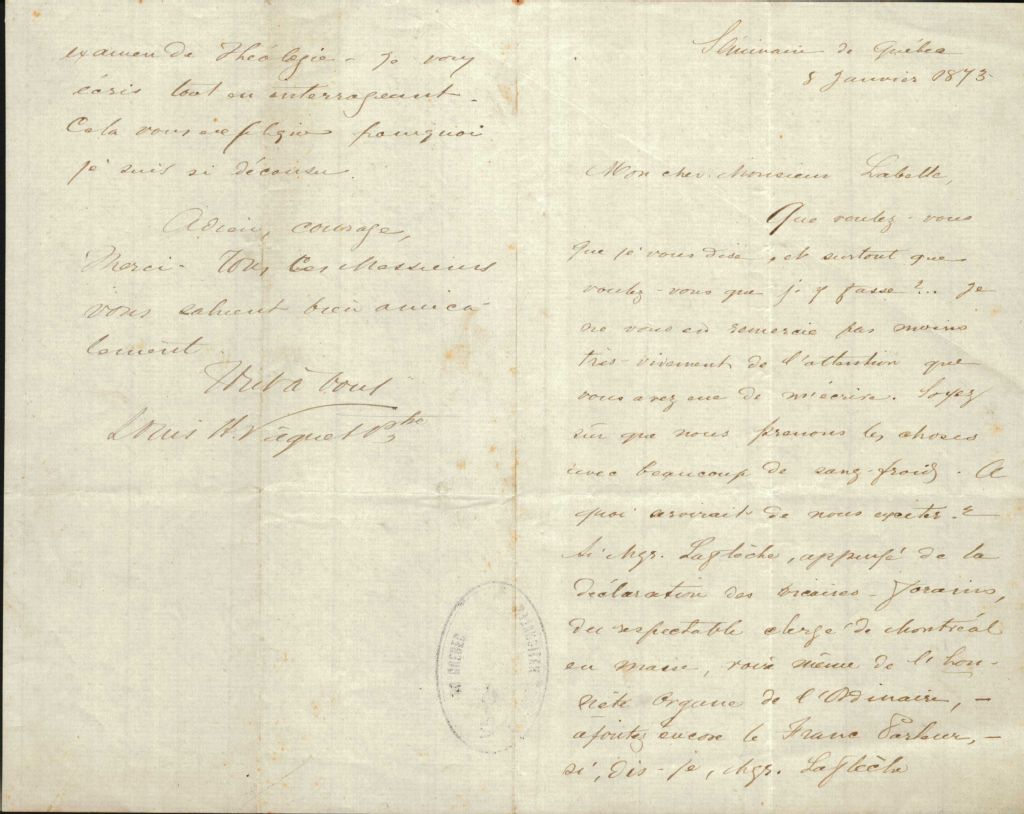 Séminaire de Québec
5 Janvier 1873
Mon cher Monsieur Labelle,
Que voulez-vous
que je vous dise, et surtout que
voulez-vous que j'y fasse?... Je
ne vous en remercie pas moins
très-vivement de l'attention que
vous avez eue de m'écrire. Soyez
sûr que nous prenons les choses
avec beaucoup de sang-froid. A
quoi servirait de nous exciter?
Si Mgr. Laflèche, appuyé de la
déclaration des Vicaires-Forains,
du respectable clergé de Montréal
en masse, voire même de l'hon-
nête organe de l'Ordinaire, –
ajoutez encore le Franc Parleur, –
si, dis-je, Mgr. Laflèche
examen de Théologie - Je vous
écris tout en interrogeant.
Cela vous explique pourquoi
je suis si décousu.
Adieu, courage,
Merci - Tous ces Messieurs
vous saluent bien amica-
lement
Tout à vous
Louis H. Pâquet Ptre
DE QUEBEC